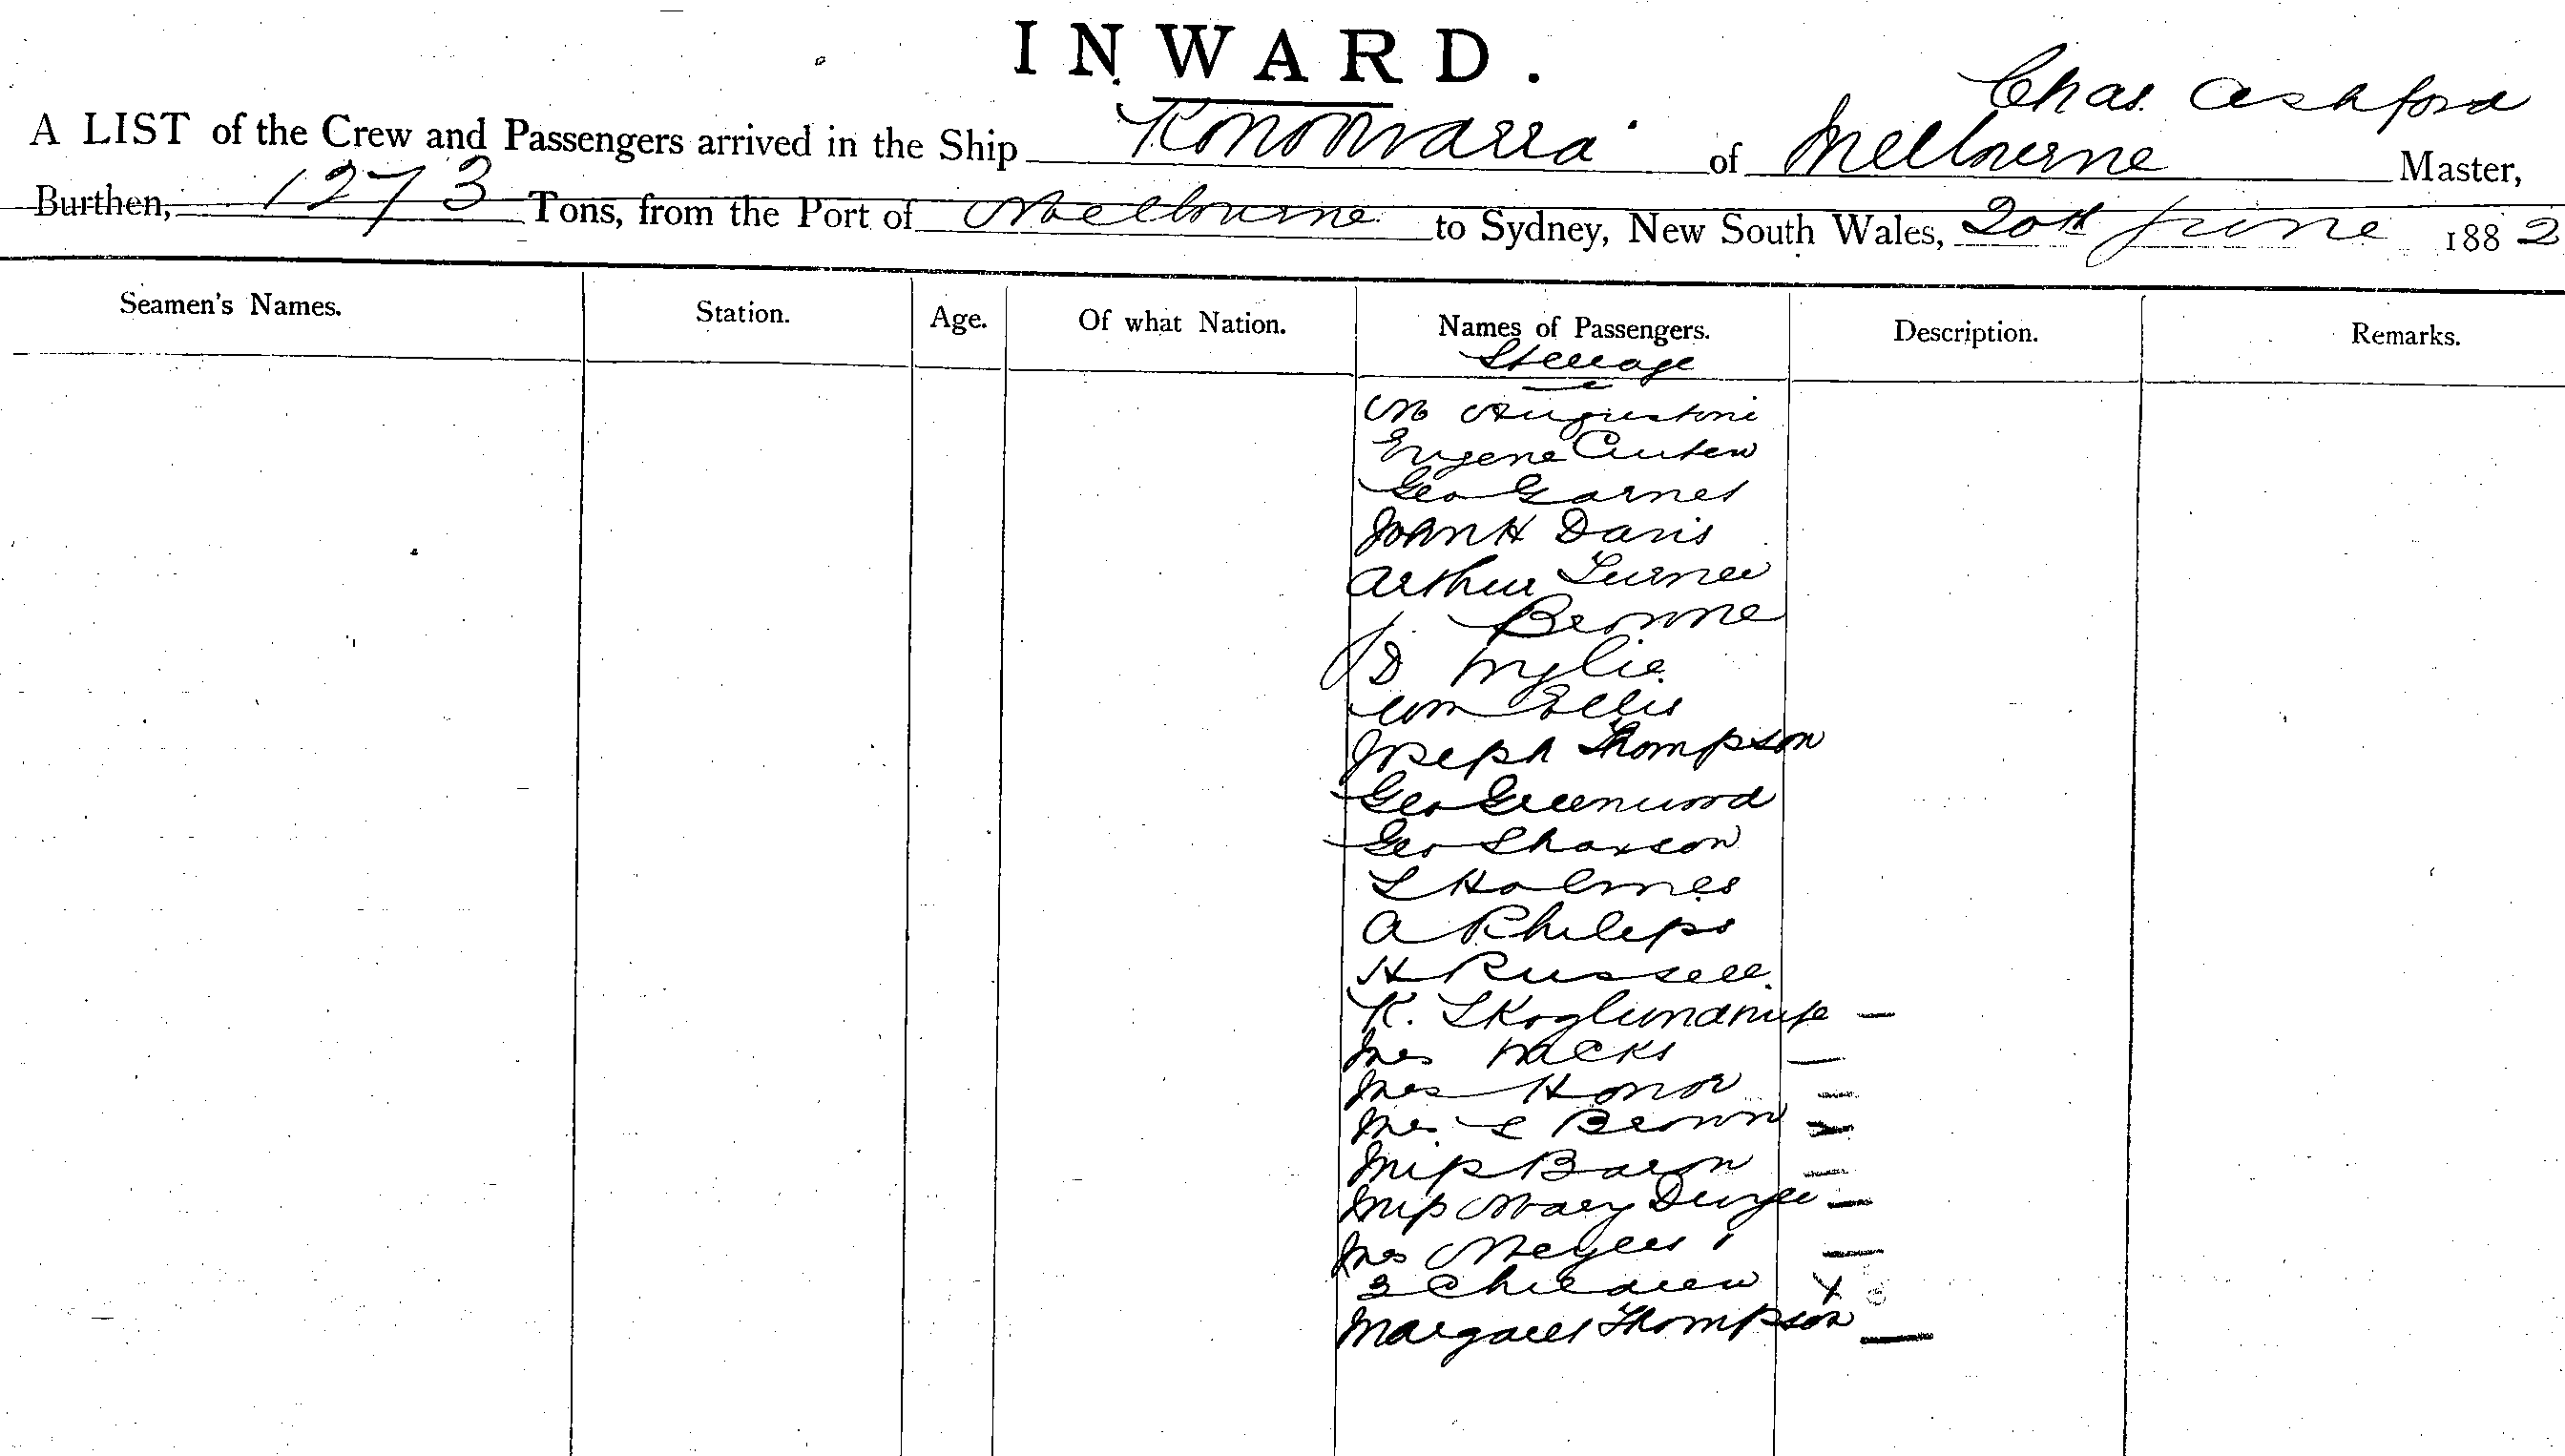 INWARD.
Chas. Ashford
A LIST of the Crew and Passengers arrived in the Ship Konoowarra of Melbourne Master,
Burthen, 1273 Tons, from the Port of Melbourne to Sydney, New South Wales, 20th June 1882
Seamen's Names. Station. Age. Of what Nation. Names of Passengers. Description. Remarks.
Steerage
M Augustini
Eugene
Geo Garnet
John H Davis
Arthur Turner
J. Browne
D Wylie
Wm Ellis
Joseph Thompson
Geo Greenwood
Geo Shaxson
S Holmes
A Philips
H Russell
K. Skoglund wife —
Mrs Wicks —
Mrs Honor —
Mrs S Brown
Miss Baron —
Miss Mary —
Mrs Meyers —
3 Children
Margaret Thompson —